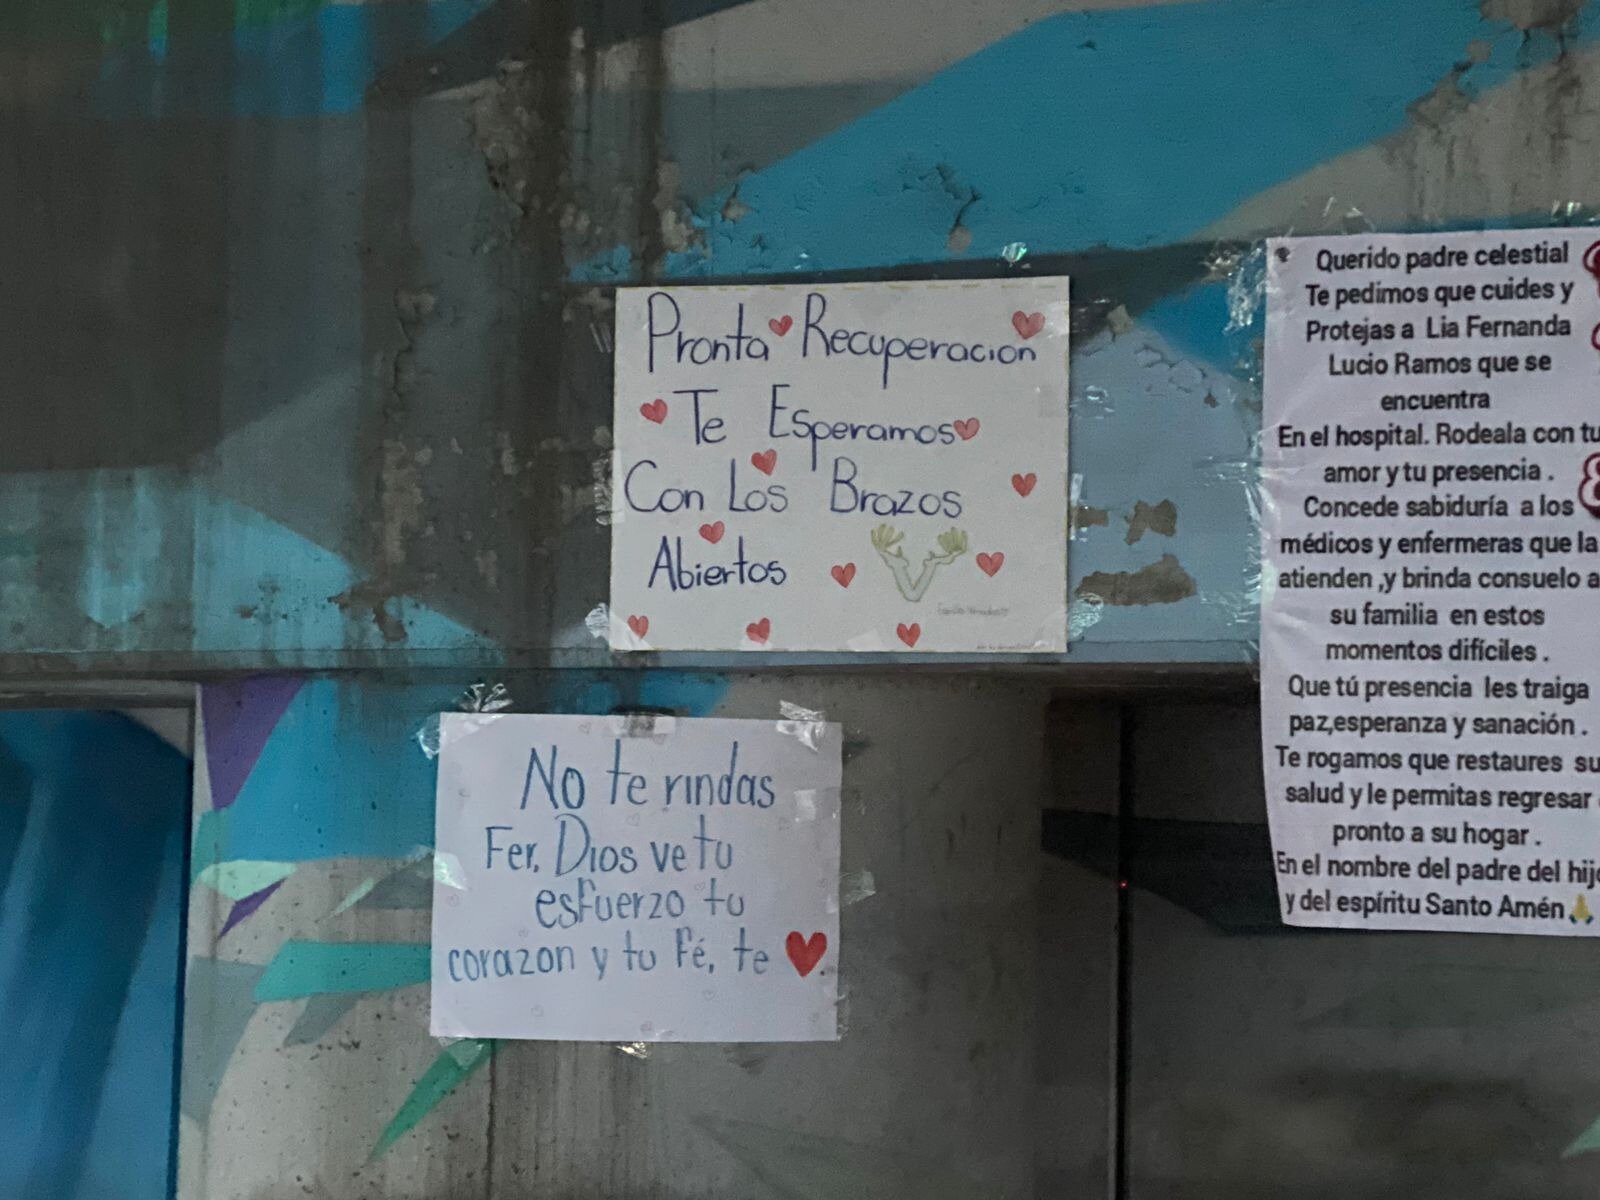 Pronta Recuperacion
Te Esperamos
Con Los Brazos
Abiertos
No te rindas
Fer, Dios ve tu
esfuerzo tu
corazon y tu fé, te ❤.
Querido padre celestial
Te pedimos que cuides y
Protejas a Lia Fernanda
Lucio Ramos que se
encuentra
En el hospital. Rodeala con tu
amor y tu presencia .
Concede sabiduría a los
médicos y enfermeras que la
atienden ,y brinda consuelo a
su familia en estos
momentos difíciles .
Que tú presencia les traiga
paz,esperanza y sanación .
Te rogamos que restaures su
salud y le permitas regresar
pronto a su hogar .
En el nombre del padre del hijo
y del espíritu Santo Amén🙏